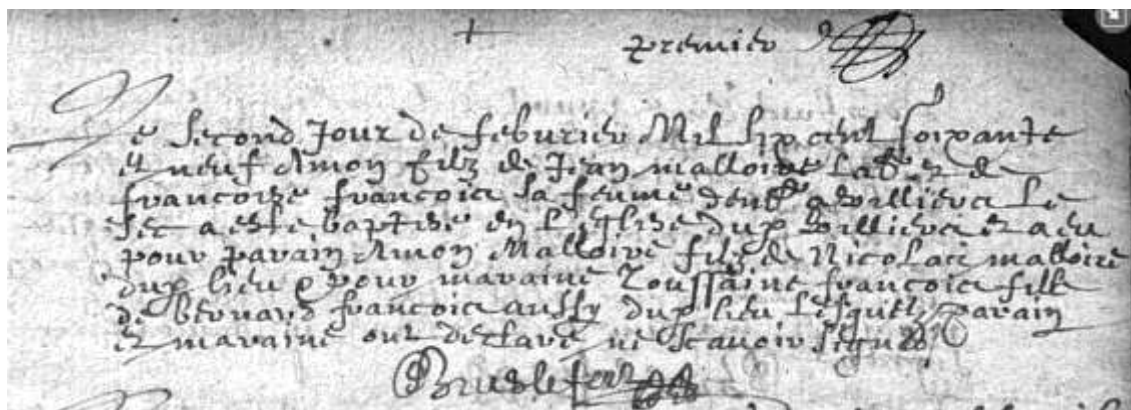 premier
Le second Jour de feburier Mil six cent soixante
et neuf Amon filz de Jean malloire lab.r & de
francoise francois sa femme dem.t a villiers le
sec a este baptise en L'Eglise dud villiers et a eu
pour parain Amon Malloire filz de Nicolas malloire
dud lieu & pour maraine Toussaine francois fille
de bernard francois aussy dud lieu Lesquels parain
et maraine ont declare ne scavoir signer